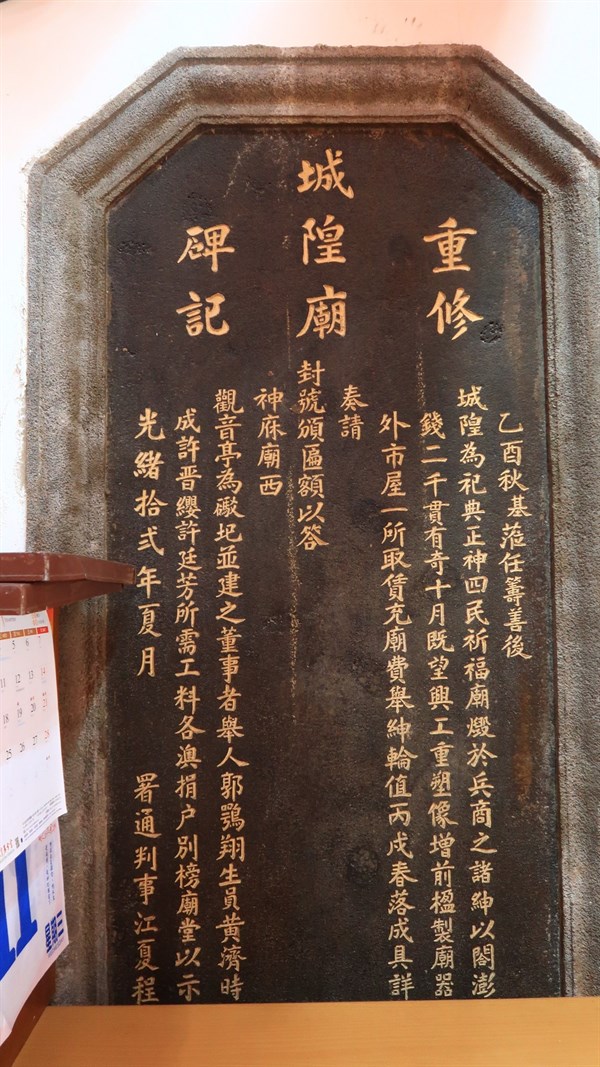 重修
城隍廟
碑記
乙酉秋基蒞任籌善後
城隍為祀典正神四民祈福廟燬於兵商之諸紳以閤澎
錢二千貫有奇十月既望興工重塑像增前楹製廟器
外市屋一所取賃充廟費舉紳輪值丙戍春落成具詳
奏請
封號頒匾額以答
神庥廟西
觀音亭為礮圮並建之董事者舉人郭鶚翔生員黄濟時
成許晋纓許廷芳所需工料各澳捐户別榜廟堂以示
光緒拾弍年夏月 署通判事江夏程
5 6
11 12 13 14
18 19 20 21
25 26 27 28
11
星期三